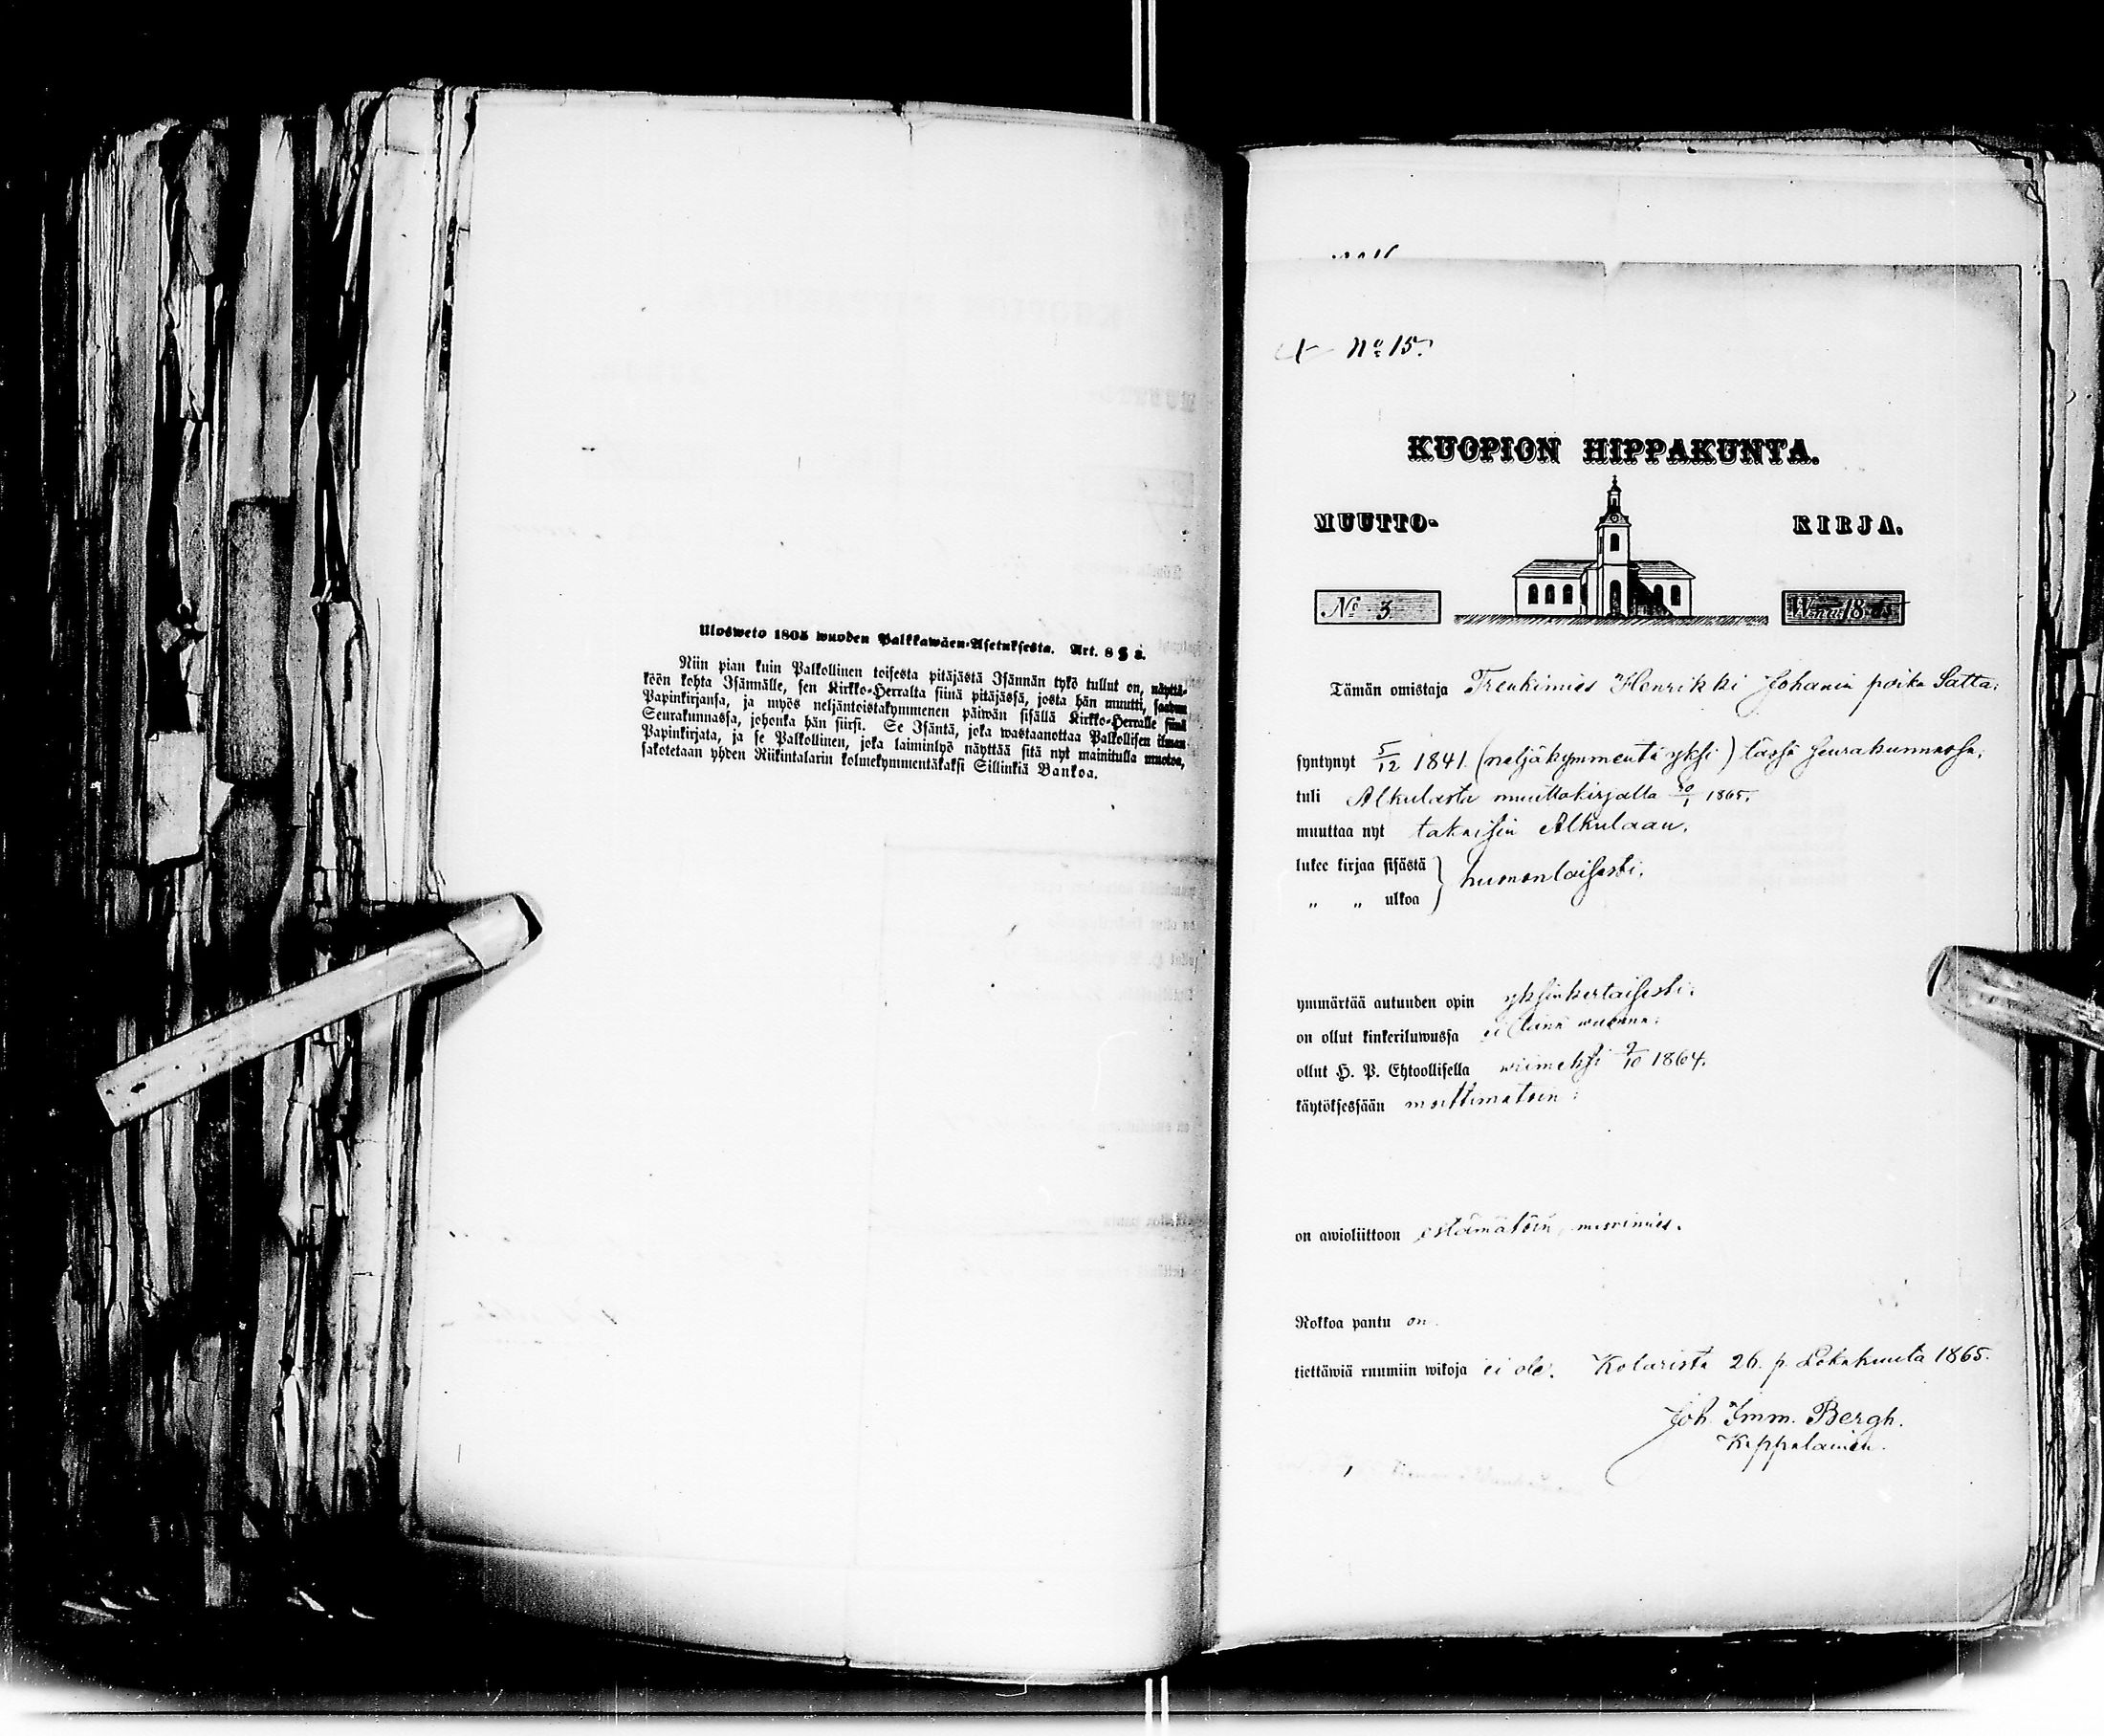 Ulosweto 1805 wuoden Palkkawäen-Asetuksesta. Art. 8 § 3.
Niin pian kuin Palkollinen toisesta pitäjästä Isännän tykö tullut on, näyttä-
köön kohta Isännälle, sen Kirkko-Herralta siinä pitäjässä, josta hän muutti, saadun
Papinkirjansa, ja myös neljäntoistakymmenen päiwän sisällä Kirkko-Herralle siinä
Seurakunnassa, johonka hän siirsi. Se Isäntä, joka wastaanottaa Palkollisen ilman
Papinkirjata, ja se Palkollinen, joka laiminlyö näyttää sitä nyt mainitulla muotoa,
sakotetaan yhden Riikintalarin kolmekymmentäkaksi Sillinkiä Bankoa.
No 15.
KUOPION HIPPAKUNTA.
MUUTTO- KIRJA.
No 3. W:nna 1865
Tämän omistaja Trenkimies Henrikki Johanin poika Satta:
syntynyt 5/12 1841. (neljäkymmentä yksi) tässä seurakunnassa.
tuli Alkulasta muuttokirjalla 30/1 1865.
muuttaa nyt takaisin Alkulaan.
lukee kirjaa sisästä } huononlaisesti.
„ „ ulkoa
ymmärtää autuuden opin yksinkertaisesti.
on ollut kinkeriluwussa ei tänä wuonna.
ollut H. P. Ehtoollisella wiimeksi 9/10 1864.
käytöksessään moittimatoin:
on awioliittoon estämätöin,
Rokkoa pantu on.
tiettäwiä ruumiin wikoja ei ole. Kolarista 26. p. Lokakuuta 1865.
Joh. Imm. Bergh.
Kappalainen.